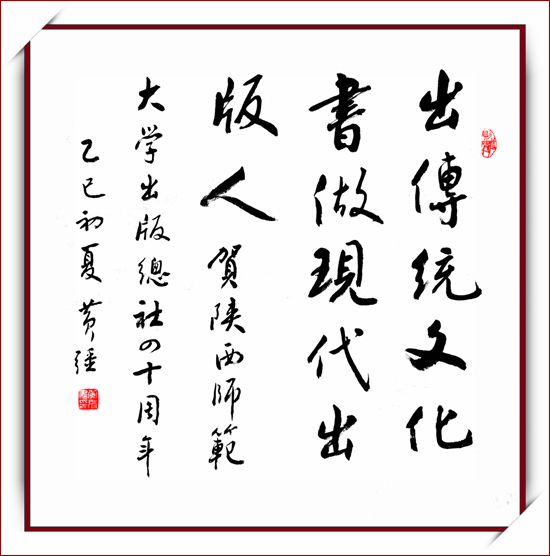 出傳統文化
書做現代出
版人賀陝西師範
大学出版總社四十周年
乙巳初夏黄强